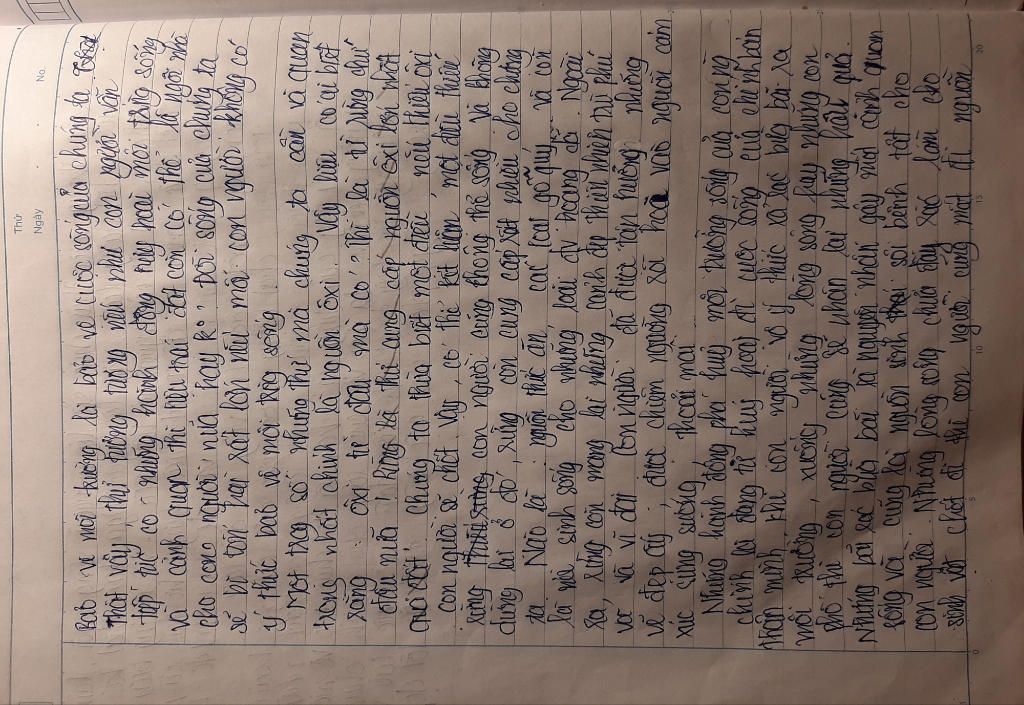 Thứ
Ngày
No.
Bảo vệ môi trường là bảo vệ cuộc sống của chúng ta
Thật vậy, thử tưởng tượng nếu như con người vẫn
tiếp tục có những hành động hủy hoại môi trường sống
và cảnh quan thì liệu trái đất còn có thể là ngôi nhà
cho con người nữa hay ko. Đời sống của chúng ta
sẽ bị tổn hại rất lớn nếu mỗi con người không có
ý thức bảo vệ môi trường sống
Một trong số những thứ mà chúng ta cần và quan
trọng nhất chính là nguồn ôxi. Vậy liệu có ai biết
rằng ôxi từ đâu mà có? Thì là từ rừng chứ
đâu nữa! Rừng là thứ cung cấp nguồn ôxi lớn nhất
trái đất. Chúng ta thừa biết một điều, nếu thiếu ôxi
con người sẽ chết. Vậy, có thể kết luận, một đều thiếu
rừng con người cũng không thể sống. Và không
dừng lại ở đó, rừng còn cung cấp rất nhiều cho chúng
ta. Nào là nguồn thức ăn, các loại gỗ quý, và còn
là nơi sinh sống cho những loài đv hoang dã. Ngoài
ra, rừng còn mang lại những cảnh đẹp thiên nhiên trù phú
và vĩ đại. Con người đã được tận hưởng những
vẻ đẹp ấy, được chiêm ngưỡng và hoà vào nguồn cảm
xúc sung sướng, thoải mái
Những hành động phá hủy môi trường sống của con ng
chính là đang tự hủy hoại đi cuộc sống của chính bản
thân mình. Khi con người vô ý thức xả rác bừa bãi ra
môi trường, xuống những dòng sông hay những con
phố thì con người cũng sẽ nhận lại những hậu quả.
Những bãi rác bừa bãi là nguyên nhân gây mất cảnh quan
sống và cũng là nguồn sinh sôi bệnh tật cho
con người. Những dòng sông chứa đầy rác làm cho
sinh vật chết đi thì con người cũng mất đi nguồn
0 5 10 15 20